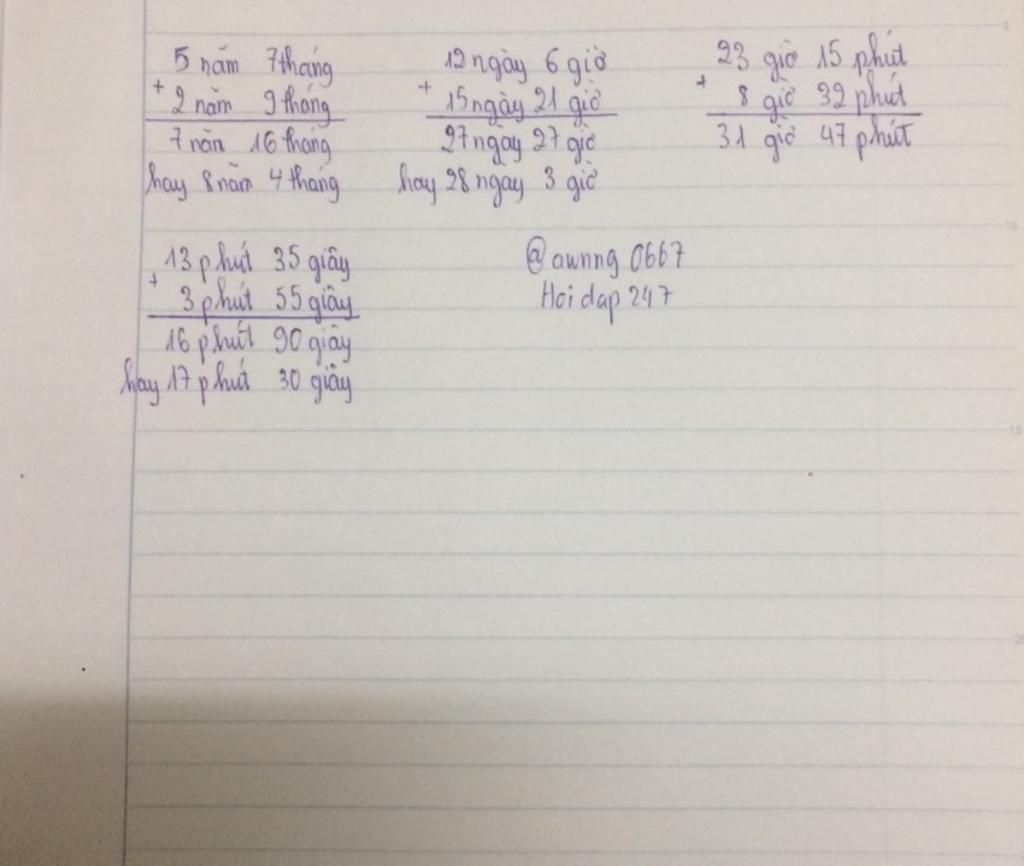 5 năm 7 tháng
+ 2 năm 9 tháng
7 năn 16 tháng
hay 8 năm 4 tháng
12 ngày 6 giờ
+ 15 ngày 21 giờ
27 ngày 27 giờ
hay 28 ngày 3 giờ
23 giờ 15 phút
+ 8 giờ 32 phút
31 giờ 47 phút
13 phút 35 giây
+ 3 phút 55 giây
16 phút 90 giây
hay 17 phút 30 giây
@awnng 0667
Hoi dap 247
5
10
15
20